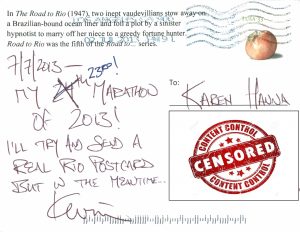 In The Road to Rio (1947), two inept vaudevillians stow away on
a Brazilian-bound ocean liner and foil a plot by a sinister
hypnotist to marry off her niece to a greedy fortune hunter.
Road to Rio was the fifth of the Road to... series.
7/7/2013—
23RD!
MY 24TH MARATHON
OF 2013!
I'LL TRY AND SEND A
REAL RIO POSTCARD
BUT IN THE MEANTIME...
Kevin
To:
KAREN HANNA
CONTENT CONTROL
CENSORED
CONTENT CONTROL